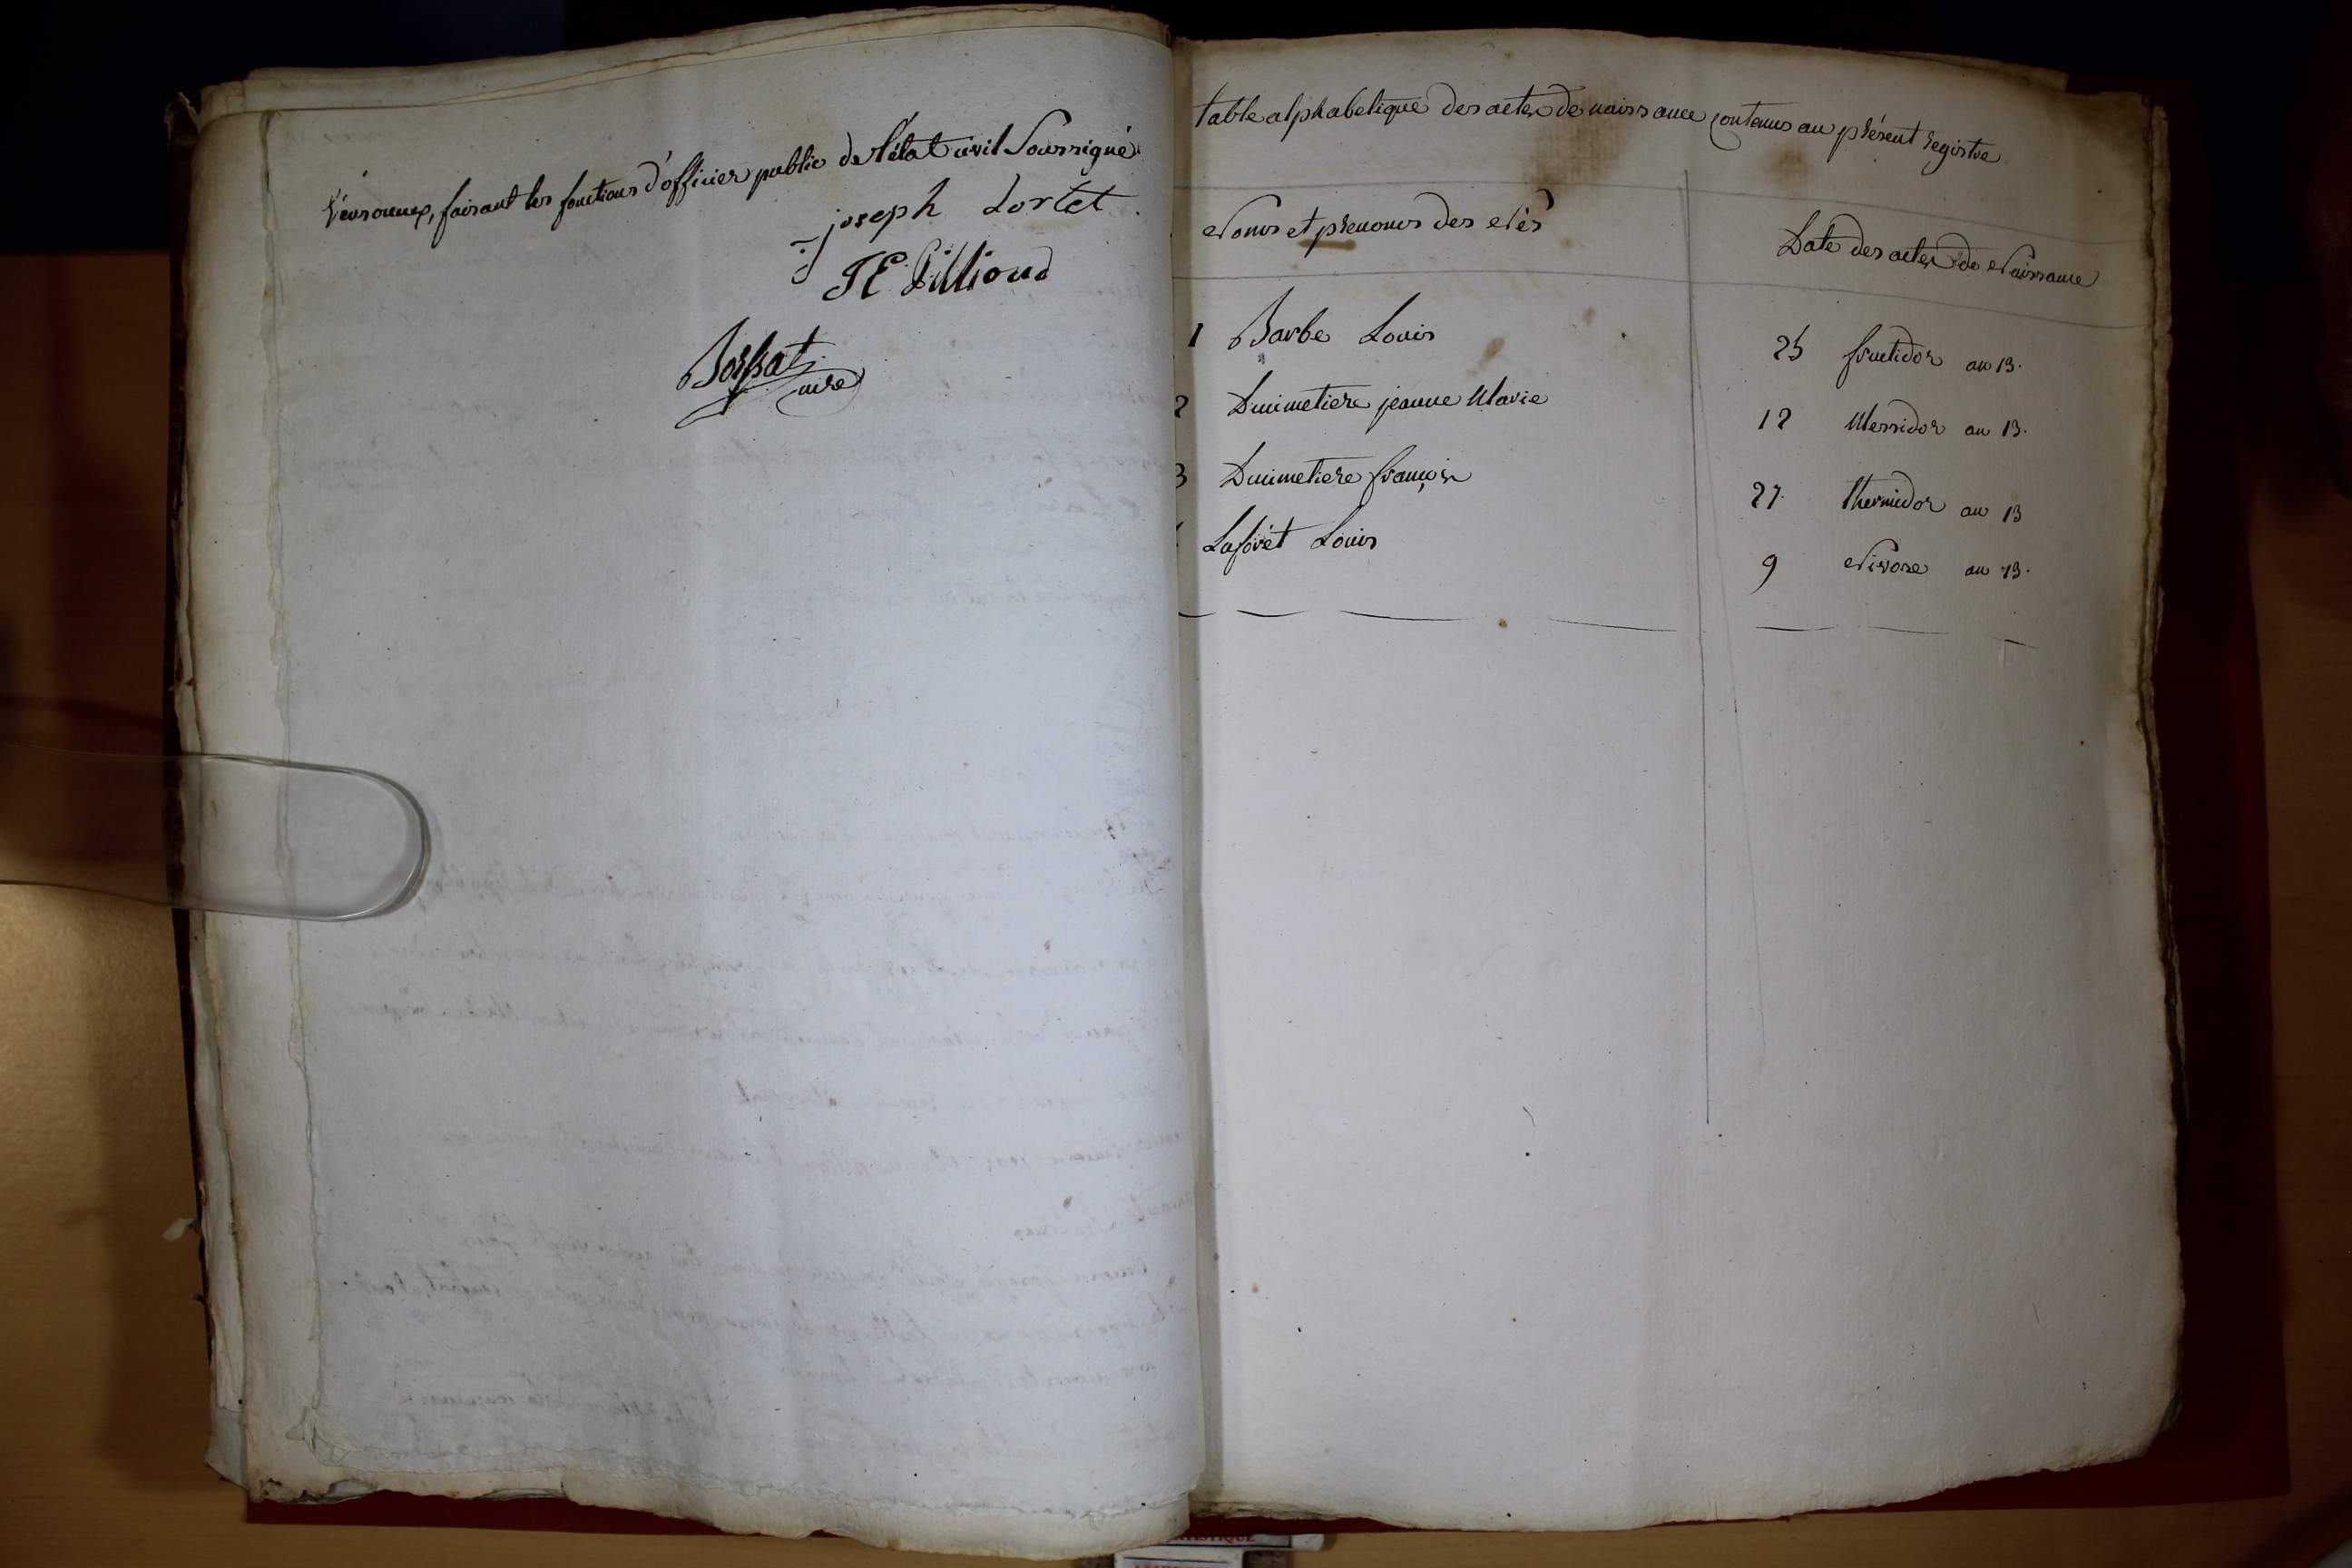 Versonnex, faisant les fonctions d'officier public de l'état civil Soussigné
joseph Lortet
JC Gillioud
Bossat
mire
table alphabetique des actes de naissance contenus au présent registre
Noms et prenoms des Nés
Date des actes de Naissance
1 Barbe Louis
25 fructidor an 13.
2 Duimetiere jeanne Marie
12 Messidor an 13.
3 Duimetiere françois
27. thermidor an 13
Laforêt Louis
9 Nivose an 13.